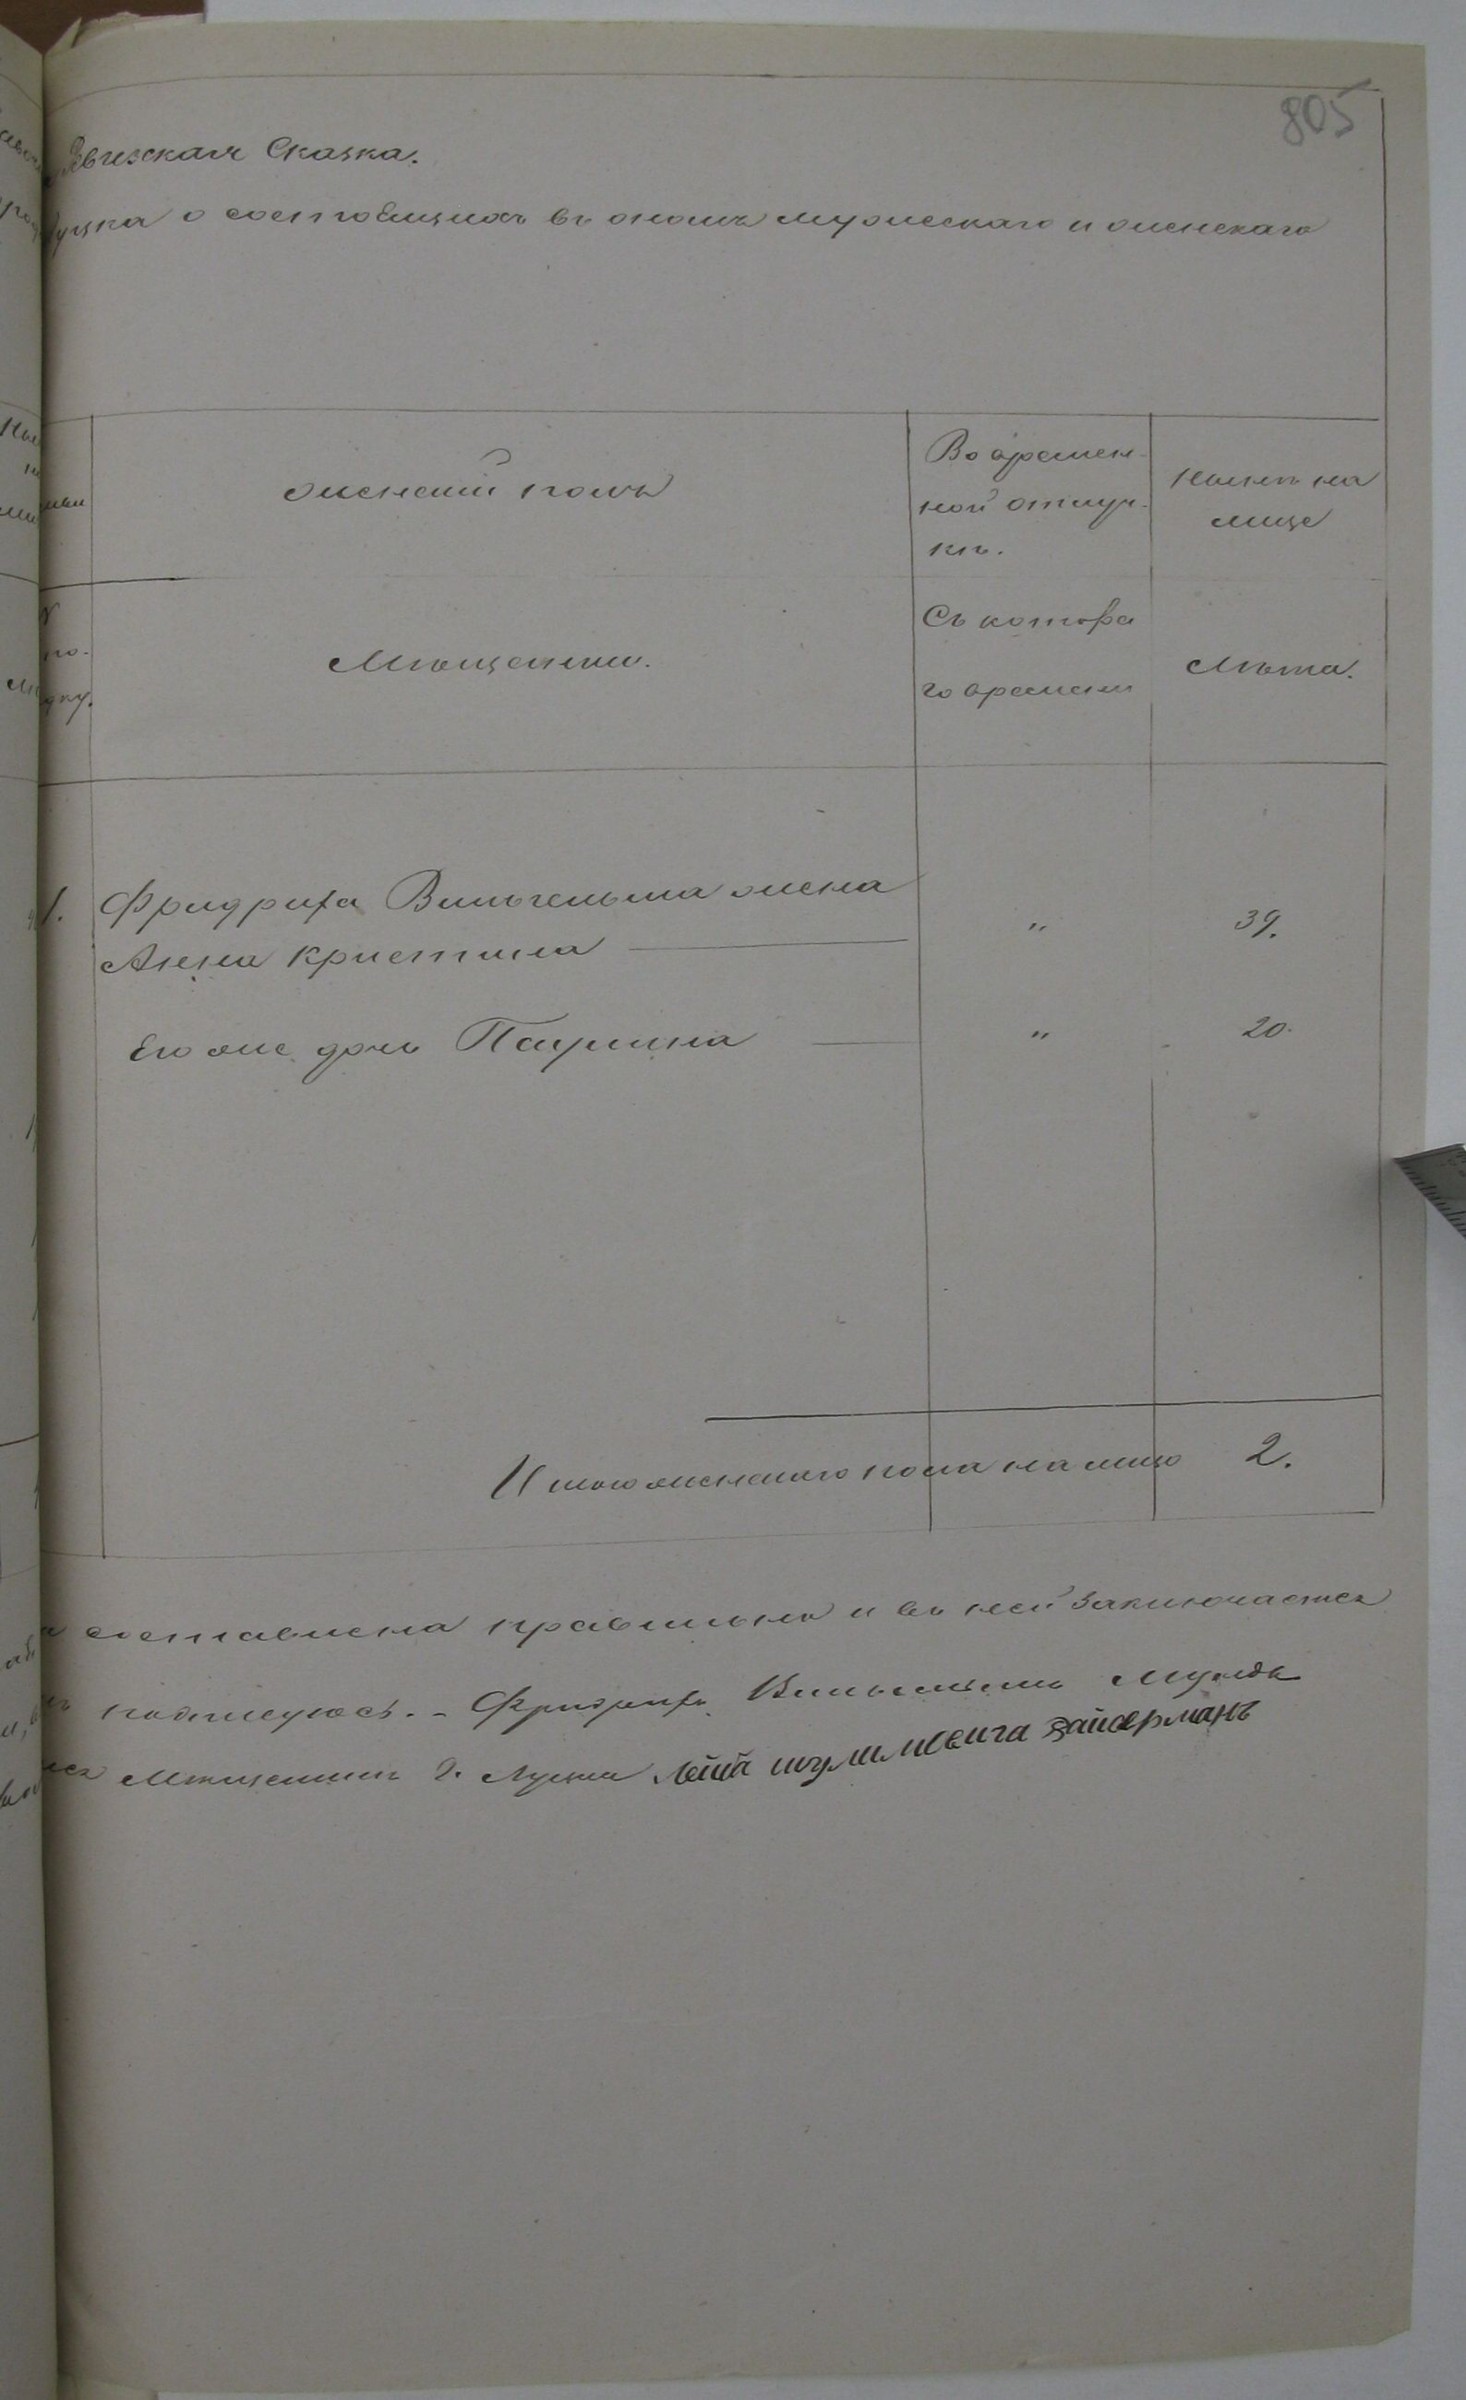 805
Ревизская Сказка.
Луцка о состоящихъ въ ономъ мужескаго и женскаго
женскій полъ
Во времен-
ной отлуч-
кѣ.
Нынѣ на
лице
Мѣщанки.
Съ котора
го времени
Лѣта.
1. Фридриха Вильгельма жена
Анна Кристина " 39.
Его же дочь Паулина " 20.
Итого женскаго пола на лицо 2.
составлена правильно и въ ней заключается
подписуюсь. - Фридрихъ Вильгельмъ
Мѣщанинъ г. Луцка Лейба Зайдерманъ